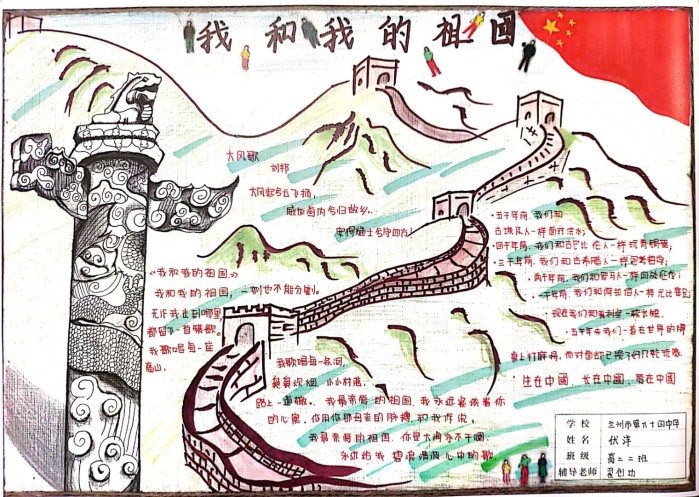 我和我的祖国
大风歌
刘邦
大风起兮云飞扬,
威加海内兮归故乡,
安得猛士兮守四方!
《我和我的祖国》
我和我的祖国,一刻也不能分割,
无论我走到哪里,
都留下一首赞歌。
我歌唱每一座
高山,
我歌唱每一条河,
袅袅炊烟,小小村落,
路上一道辙。我最亲爱的祖国,我永远紧依着你
的心窝,你用你那母亲的脉搏,和我诉说。
我最亲爱的祖国,你是大海永不干涸,
永远给我碧浪清波心中的歌
·五千年前,我们和
古埃及人一样面对洪水;
·四千年前,我们和古巴比伦人一样玩青铜器;
·三千年前,我们和古希腊人一样思考哲学;
·两千年前,我们和罗马人一样四处征战;
·一千年前,我们和阿拉伯人一样无比富足;
·现在我们和美利坚一较长短。
·五千年来我们一直在世界的牌
桌上打麻将,而对面却已换了好几轮玩家
生在中國,长在中國,
学校 兰州市第六十四中学
姓名 伏洋
班级 高二二班
辅导老师